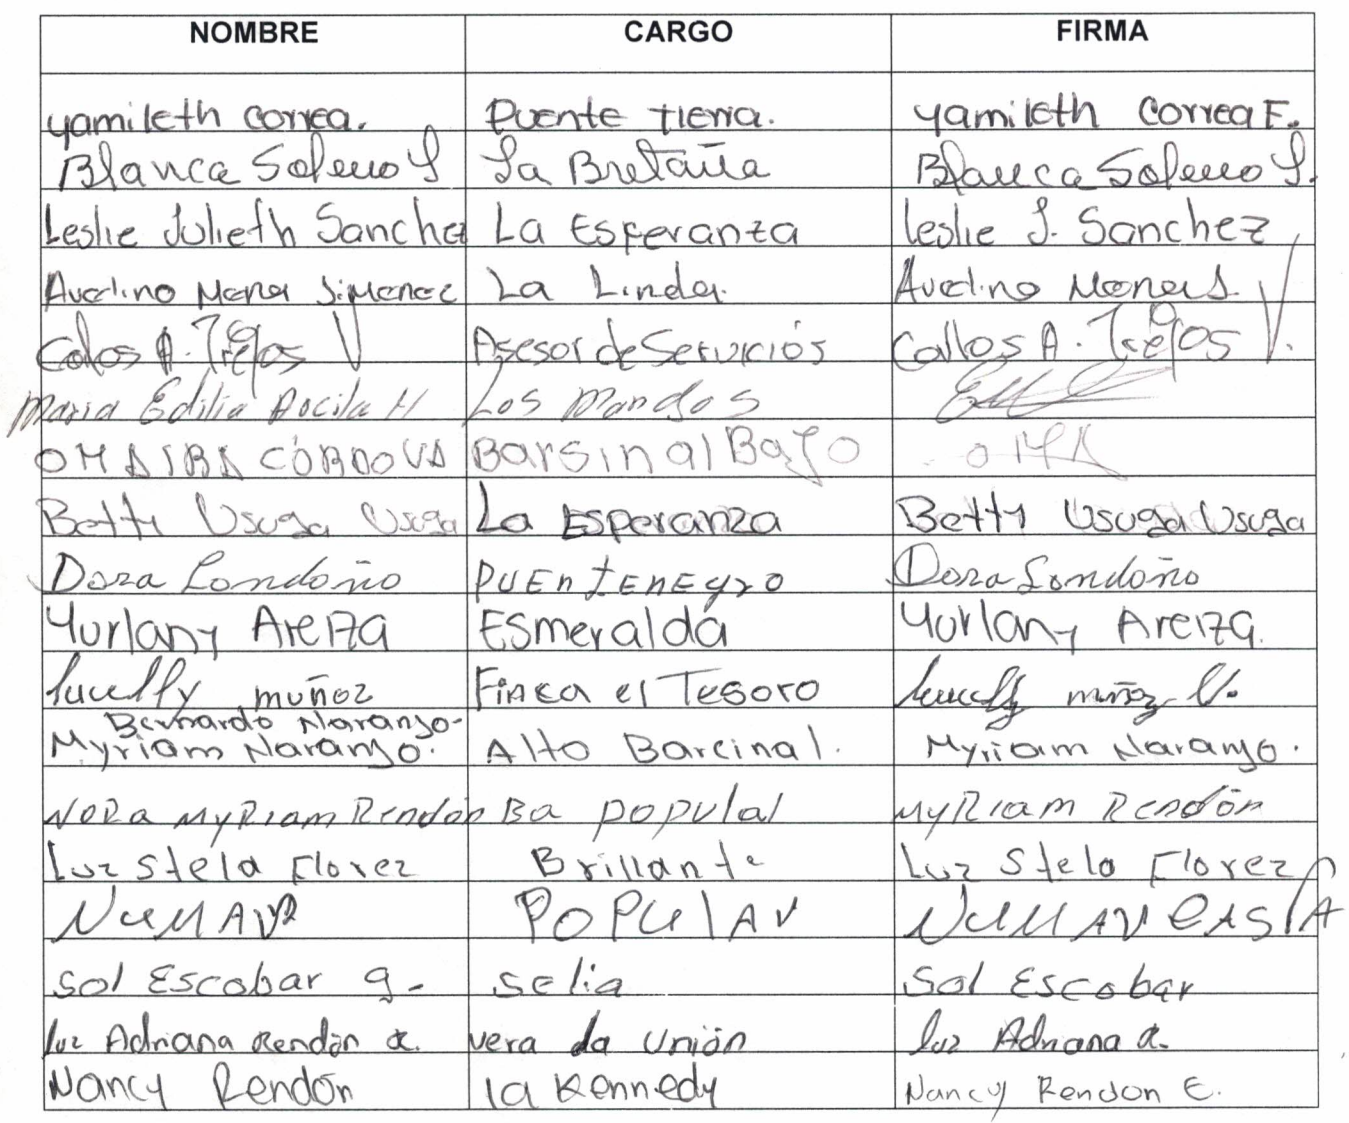 NOMBRE CARGO FIRMA
yamileth correa. Puente tierra. yamileth correa F.
Blanca Soleno S La Bretaña Blanca Soleno S.
Leslie Julieth Sanchez La Esperanza Leslie J. Sanchez
Avelino Mena Jimenez La Linda. Avelino Mena J
Carlos A. Trejos V Asesor de Servicios Carlos A. Trejos V.
Maria Edilia Los Mangos
OMAIRA CÓRDOVA Barsinal Bajo OMA
Betty Usuga Usuga La Esperanza Betty Usuga Usuga
Dora Londoño PUEntENEgro Dora Londoño
Yurlany Areiza Esmeralda Yurlany Areiza.
lucelly muñoz Finca el Tesoro lucelly muñoz V.
Bernardo Naranjo-
Myriam Naranjo. Alto Barcinal. Myriam Naranjo.
NORa MyRiam Rendón Ba popular MyRiam Rendón
Luz Stela Florez Brillante Luz Stela Florez
POPUlAr
Sol Escobar g. Selia Sol Escobar
luz Adriana Rendón R. vera da Unión luz Adriana R.
Nancy Rendón la Kennedy Nancy Rendon E.